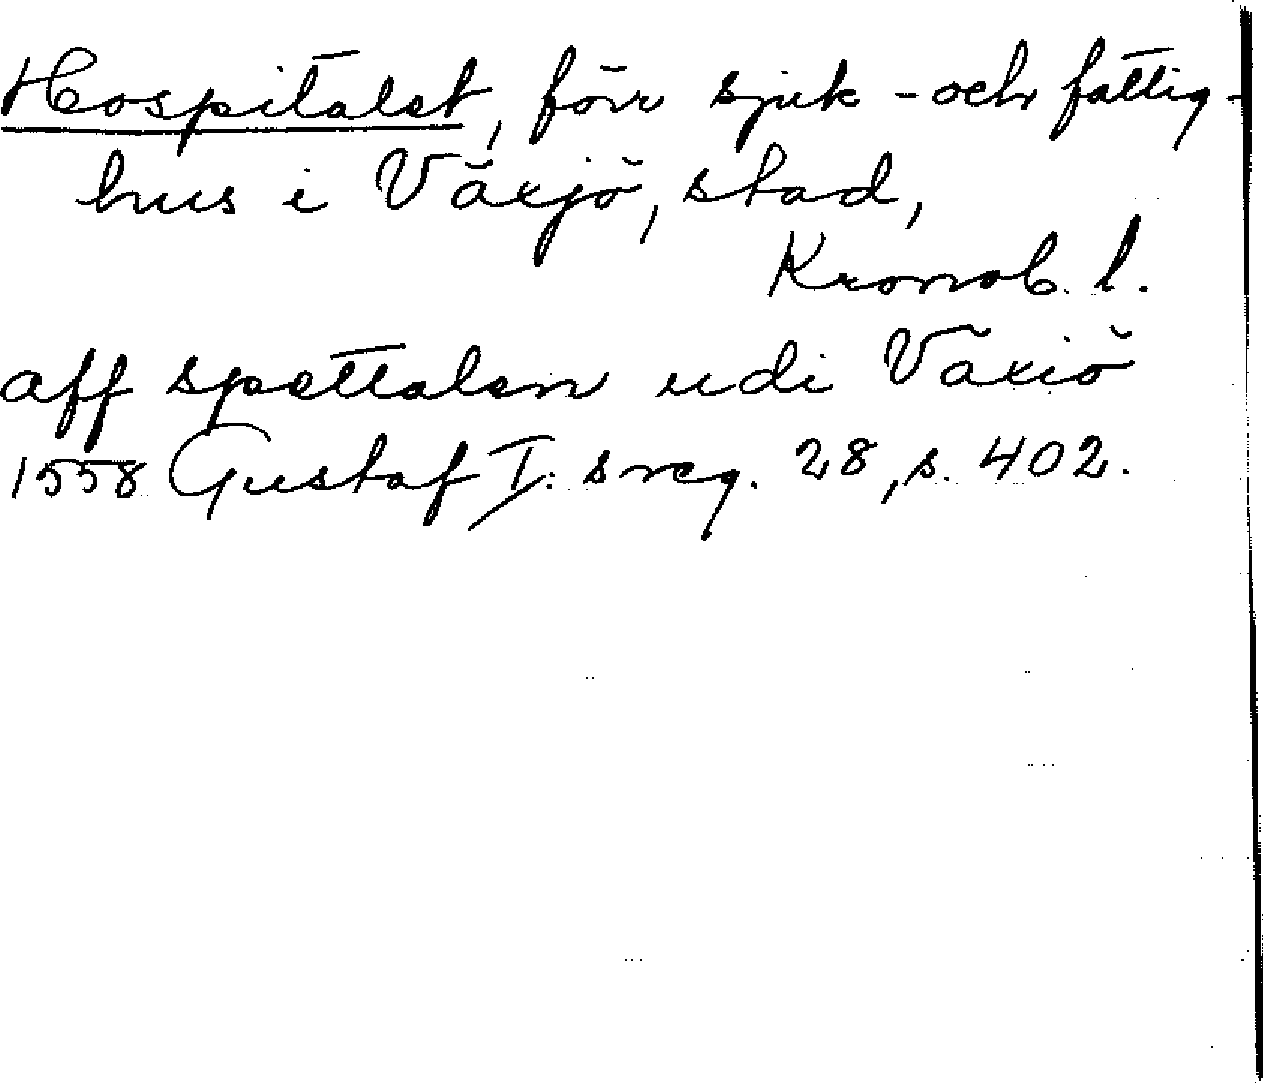 Hospitalet, förr sjuk- och fattig-
hus i Växjö, stad,
Kronob. l.
aff spettalen udi Växiö
1558 Gustaf I: s reg. 28, s. 402.